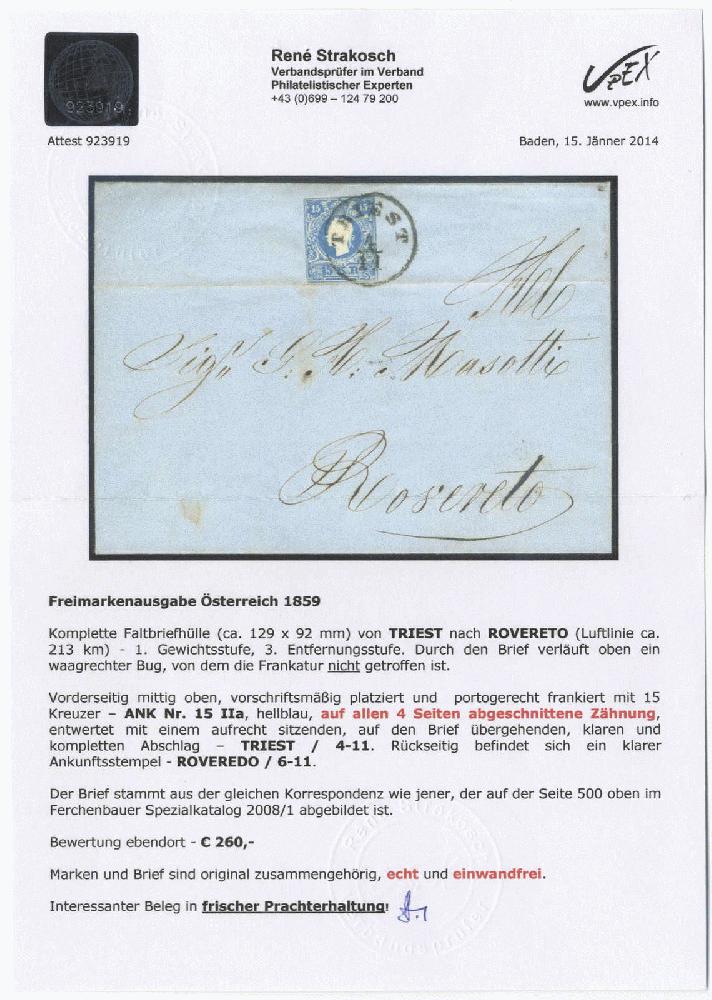 923919
René Strakosch
Verbandsprüfer im Verband
Philatelistischer Experten
+43 (0)699 – 124 79 200
VPEX
www.vpex.info
Attest 923919
Baden, 15. Jänner 2014
15 15
TRIEST
4
11
15
Sigr G. H. Masotti
Rovereto
Freimarkenausgabe Österreich 1859
Komplette Faltbriefhülle (ca. 129 x 92 mm) von TRIEST nach ROVERETO (Luftlinie ca.
213 km) - 1. Gewichtsstufe, 3. Entfernungsstufe. Durch den Brief verläuft oben ein
waagrechter Bug, von dem die Frankatur nicht getroffen ist.
Vorderseitig mittig oben, vorschriftsmäßig platziert und portogerecht frankiert mit 15
Kreuzer – ANK Nr. 15 IIa, hellblau, auf allen 4 Seiten abgeschnittene Zähnung,
entwertet mit einem aufrecht sitzenden, auf den Brief übergehenden, klaren und
kompletten Abschlag – TRIEST / 4-11. Rückseitig befindet sich ein klarer
Ankunftsstempel - ROVEREDO / 6-11.
Der Brief stammt aus der gleichen Korrespondenz wie jener, der auf der Seite 500 oben im
Ferchenbauer Spezialkatalog 2008/1 abgebildet ist.
Bewertung ebendort - € 260,-
Marken und Brief sind original zusammengehörig, echt und einwandfrei.
Interessanter Beleg in frischer Prachterhaltung!